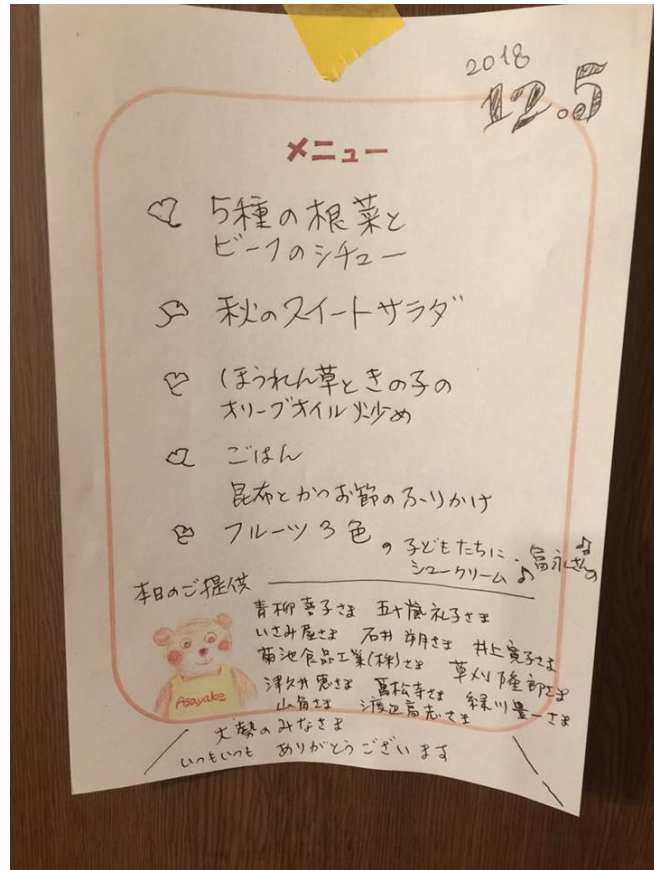 2018
12.5
メニュー
5種の根菜と
ビーフのシチュー
秋のスイートサラダ
ほうれん草ときの子の
オリーブオイル炒め
ごはん
昆布とかつお節のふりかけ
フルーツ3色
。子どもたちに
シュークリーム♪
冨永さんの♫
本日のご提供
青柳喜子さま 五十嵐礼子さま
いさみ屋さま 石井 さま 井上寛子さま
菊池食品工業(株)さま 草刈隆部さま
津久井恵さま 萬松寺さま 緑川豊一さま
山角さま 渡辺高志さま
Asayake
大勢のみなさま
いつもいつも ありがとうございます